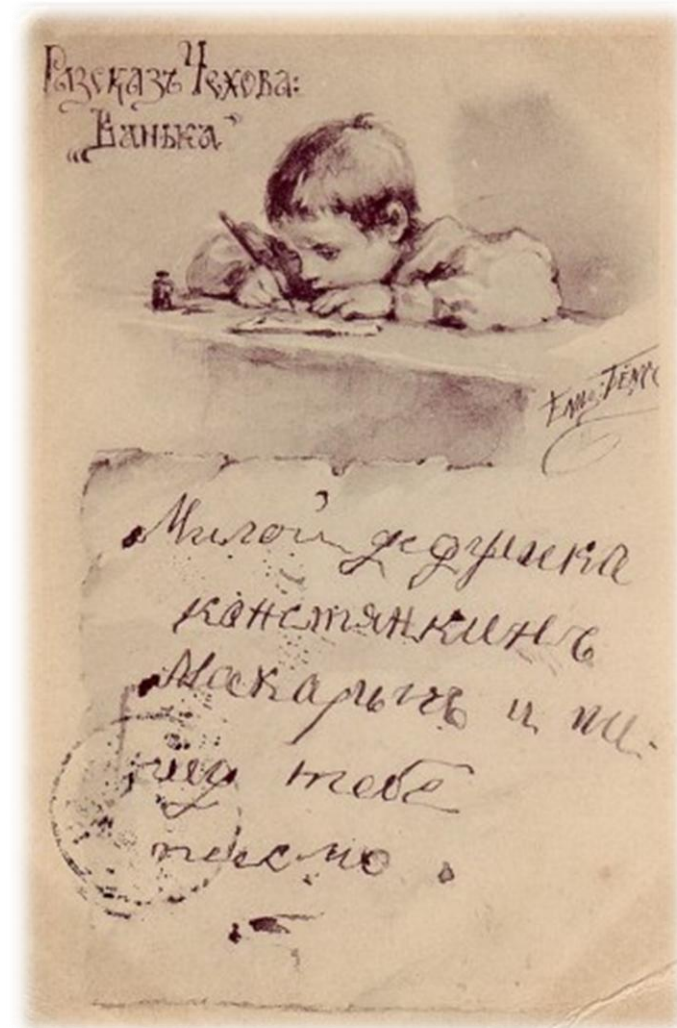 Разсказъ Чехова:
„Ванька"
Елиз. Бёмъ
Милой дедушка
констянкинъ
Макарычъ и пи-
шу тебе
писмо.